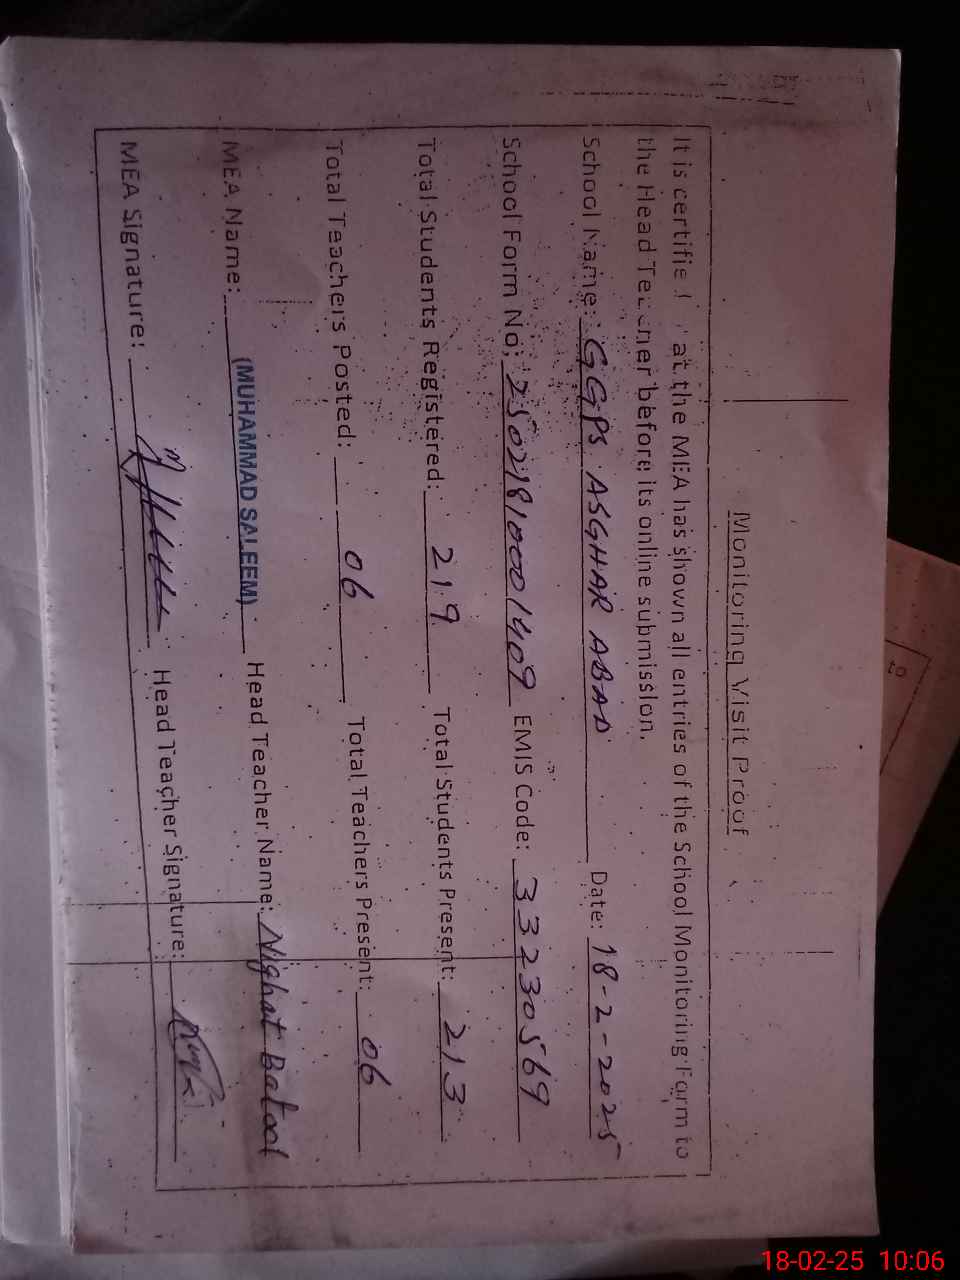 Monitoring Visit Proof
It is certified that the MEA has shown all entries of the School Monitoring Form to
the Head Teacher before its online submission.
School Name: GGPS ASGHAR ABAD Date: 18-2-2025
School Form No: 250218100001409 EMIS Code: 33230569
Total Students Registered: 219 Total Students Present: 213
Total Teachers Posted: 06 Total Teachers Present: 06
MEA Name: (MUHAMMAD SALEEM) Head Teacher Name: Nighat Batool
MEA Signature: Head Teacher Signature:
to
18-02-25 10:06